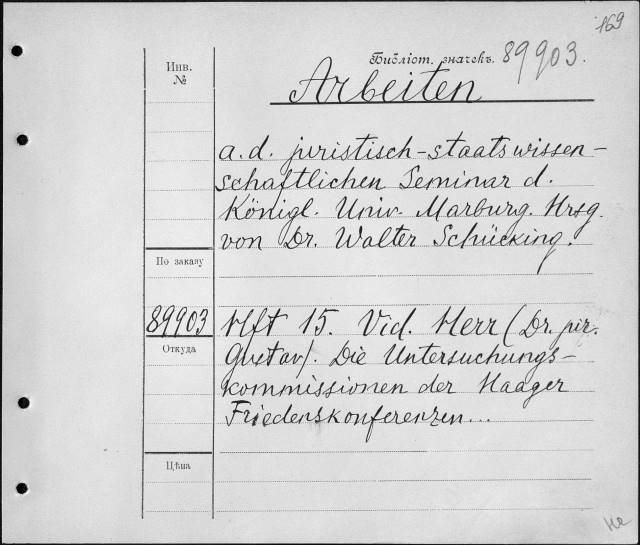 169
Инв.
№
Библіот. значекъ. 89903.
Arbeiten
a. d. juristisch-staatswissen-
schaftlichen Seminar d.
Königl. Univ. Marburg. Hrsg.
von Dr. Walter Schücking.
По заказу
89903
Hft 15. Vid. Herr (Dr. jur.
Откуда
Gustav). Die Untersuchungs-
kommissionen der Haager
Friedenskonferenzen...
Цѣна